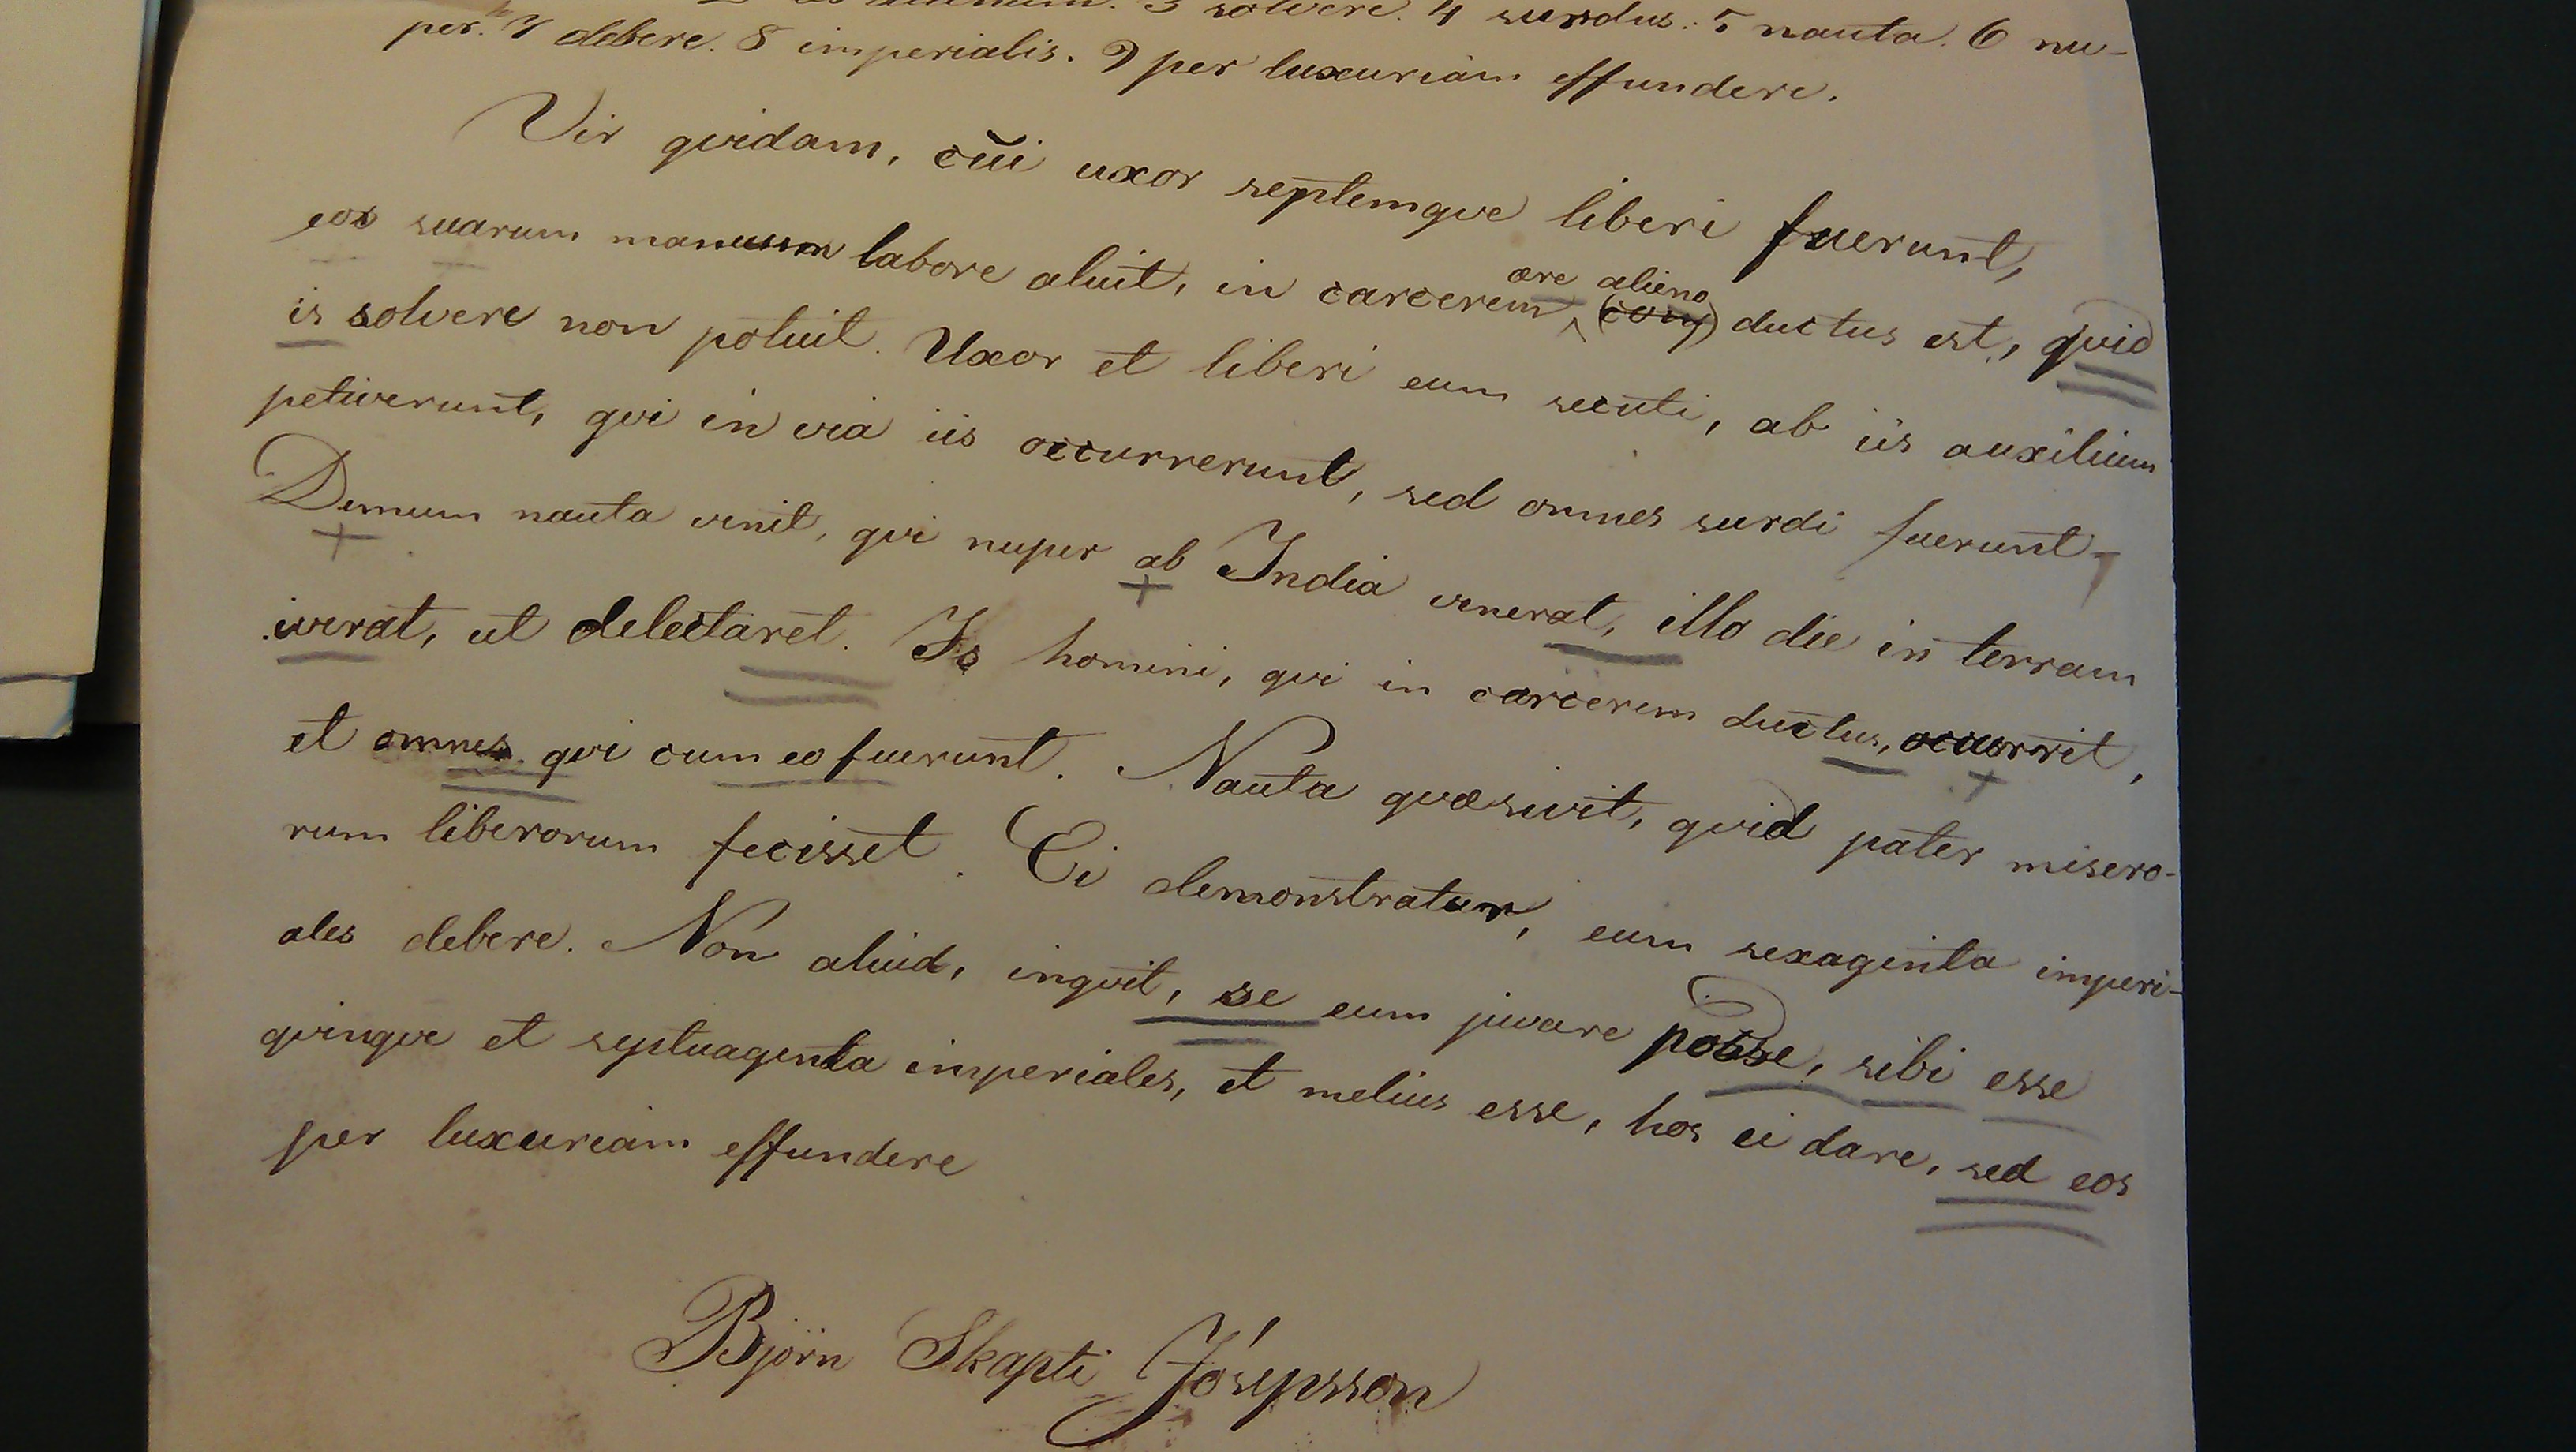 æs alienum. 3 solvere. 4 surdus. 5 nauta. 6 nu-
per. 7 debere. 8 imperialis. 9 per luxuriam effundere.
Vir qvidam, cui uxor septemqve liberi fuerunt,
eos suarum manuum labore aluit, in carcerem ære alieno ductus est, qvid
is solvere non potuit. Uxor et liberi eum secuti, ab iis auxilium
petiverunt, qvi in via iis occurrerunt, sed omnes surdi fuerunt.
Demum nauta venit, qvi nuper ab India venerat, illo die in terram
iverat, ut delectaret. Is homini, qvi in carcerem ductus, occurrit,
et omnes qvi cum eo fuerunt. Nauta qvæsivit, qvid pater misero-
rum liberorum fecisset. Ei demonstratum, eum sexaginta imperi-
ales debere. Non aliud, inqvit, se eum juvare posse, sibi esse
qvinqve et septuaginta imperiales, et melius esse, hos ei dare, sed eos
per luxuriam effundere
Björn Skapti Jósepsson